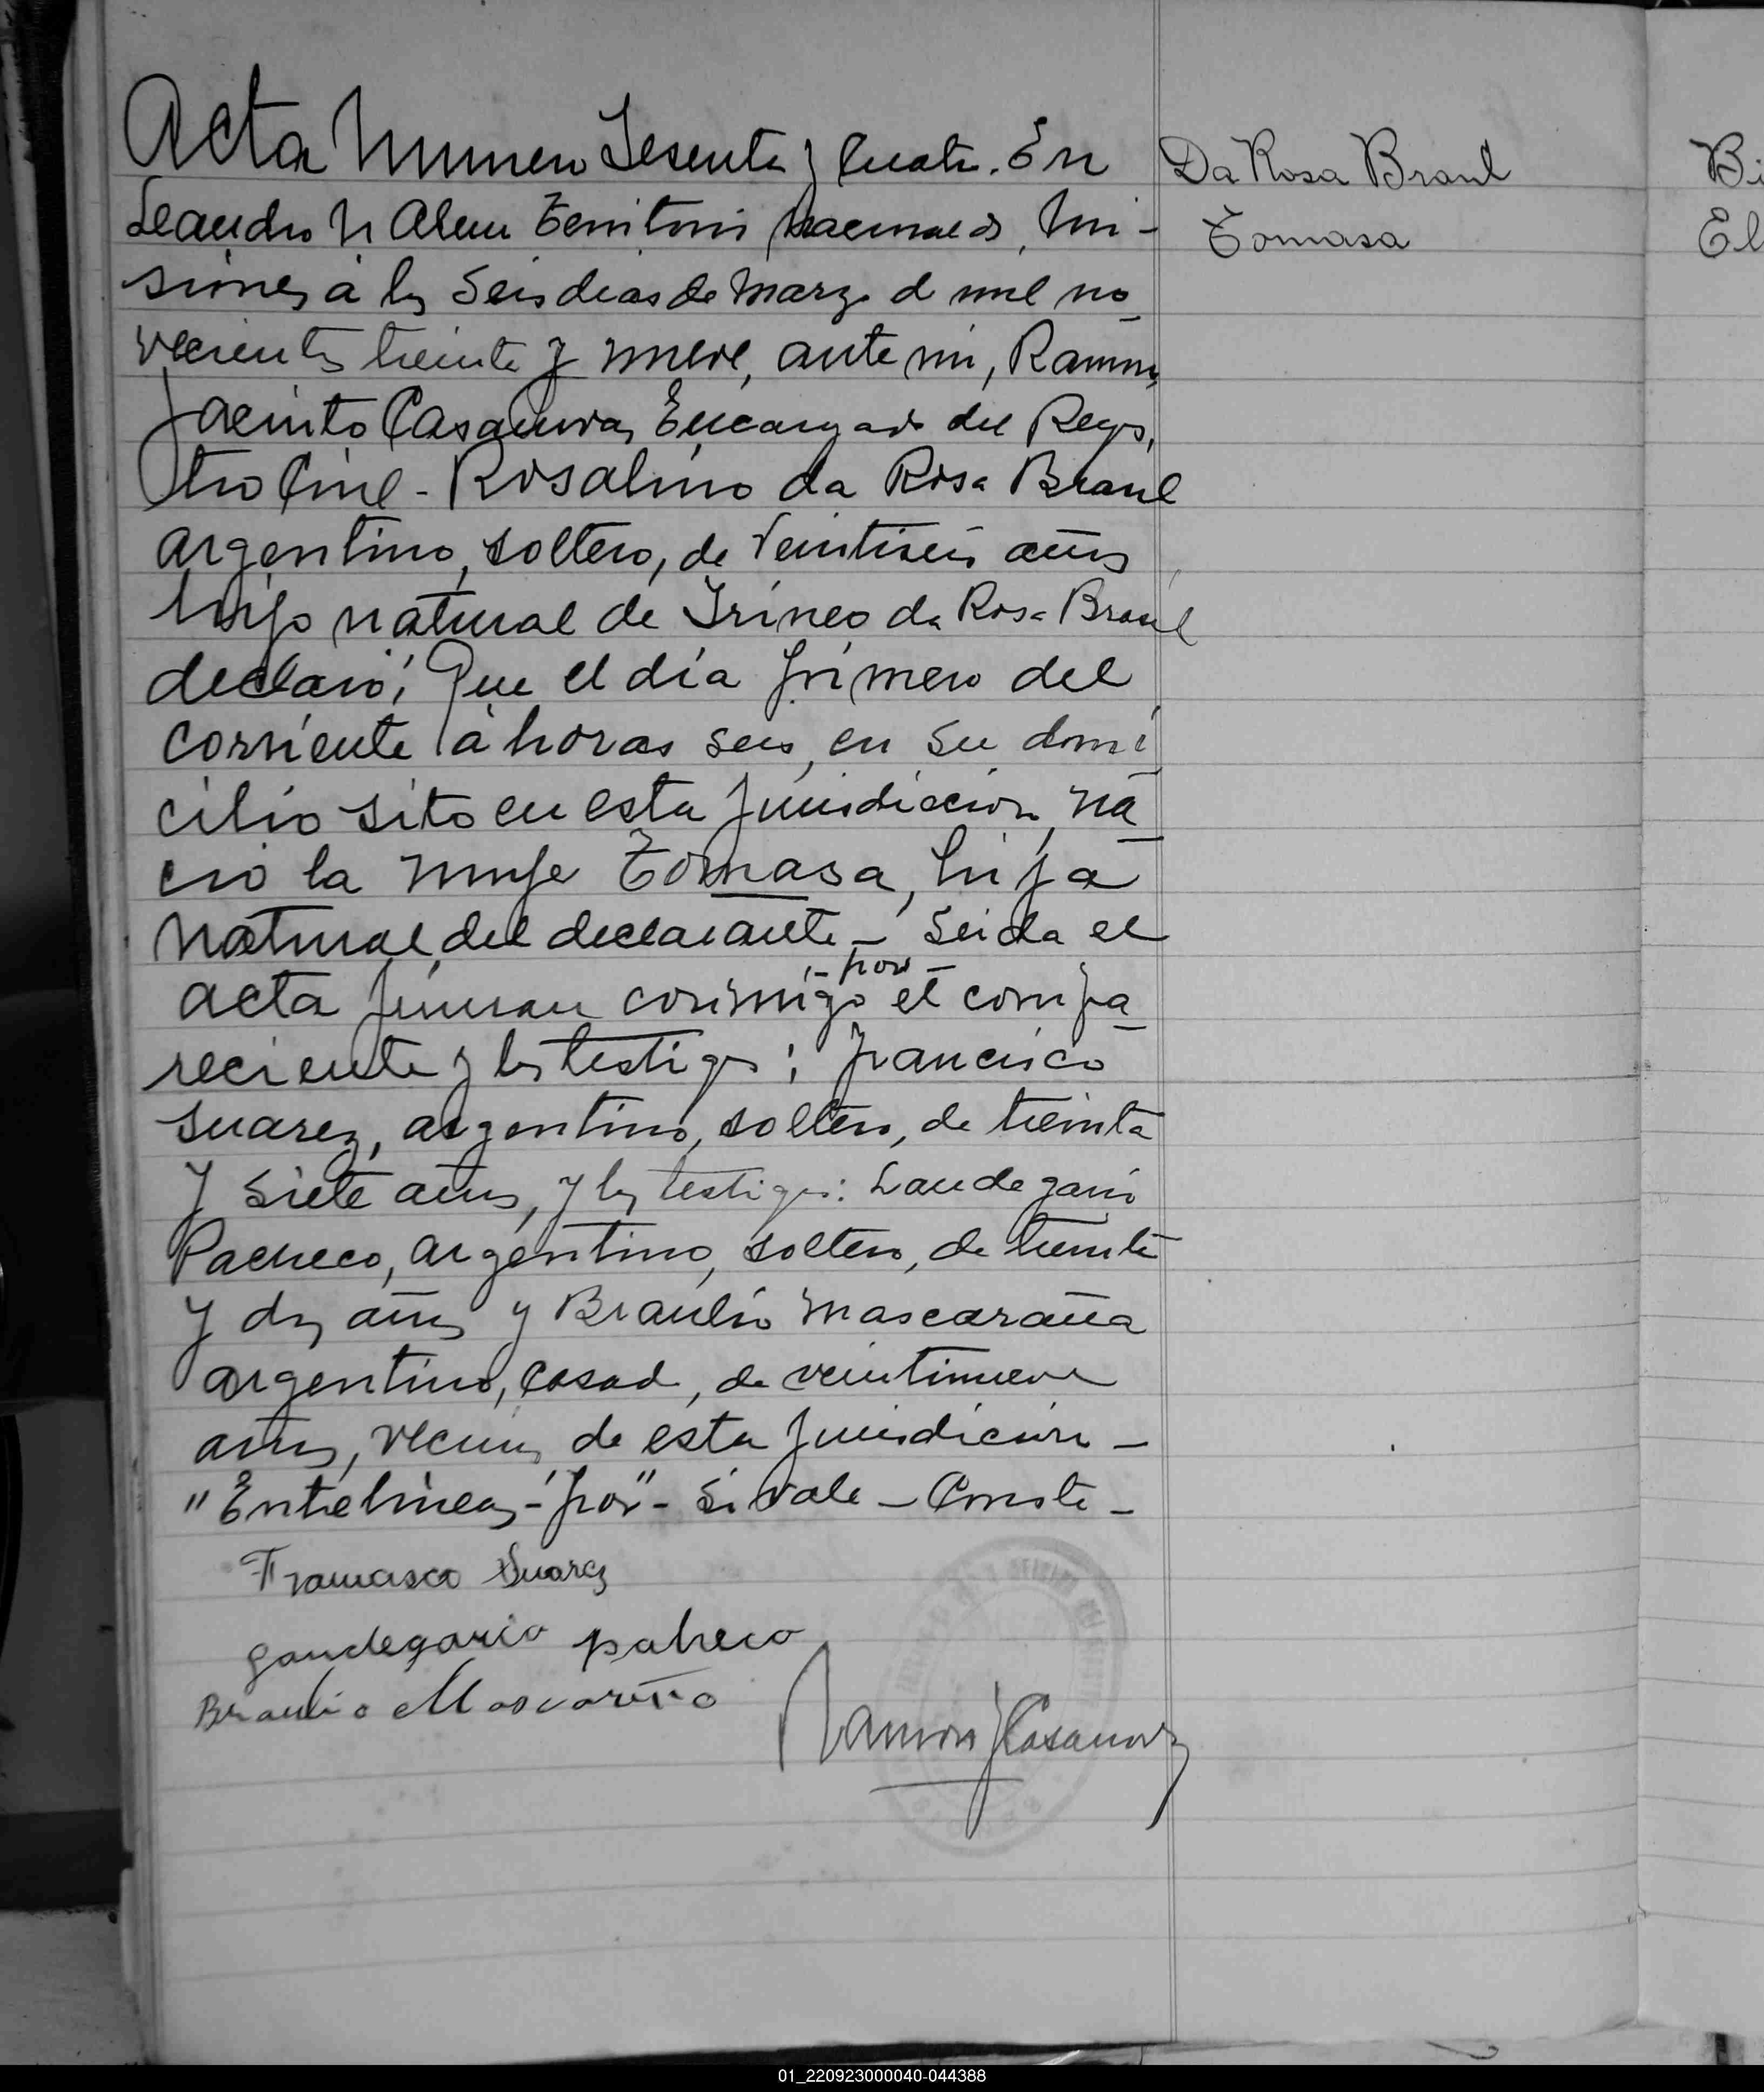 Acta Numero Sesenta y Cuatro. En
Leandro N Alem Territorio Nacional de Mi-
siones a los Seis dias de Marzo de mil no-
vecientos treinta y nueve, ante mi, Ramon
Jacinto Casanova, Encargado del Regis-
tro Civil - Rosalino da Rosa Brasil
argentino, soltero, de Veintiseis años
hijo natural de Irineo da Rosa Brasil
declaró: Que el día primero del
corriente a horas seis, en su domi-
cilio sito en esta jurisdiccion, na-
ció la mujer Tomasa, hija
natural del declarante - Leida el
- por -
acta firman conmigo el compa-
reciente y los testigos: Francisco
Suarez, argentino, soltero, de treinta
y siete años, y los testigos: Laudegario
Pacheco, argentino, soltero, de treinta
y dos años y Braulio Mascaraña
argentino, casado, de veintinueve
años, vecinos de esta jurisdiccion -
"Entrelineas - "por" - Si vale - Conste -
Francisco Suarez
Gaudegario pacheco
Braulio
Ramon J Casanova
Da Rosa Brasil
Tomasa
Bi
El
01_220923000040-044388